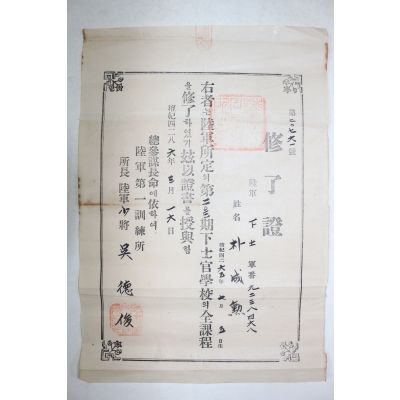 第二〇七六一號
修了證
陸軍 下士 軍番 九二三八四六八
姓名 朴成勳
檀紀四二六五年七月五日生
右者는陸軍所定의第二三期下士官學校의全課程
을修了하였기茲以證書를授與함
檀紀四二八六年三月一六日
總參謀長命에依하여
陸軍第一訓練所
所長 陸軍小將 吳德俊